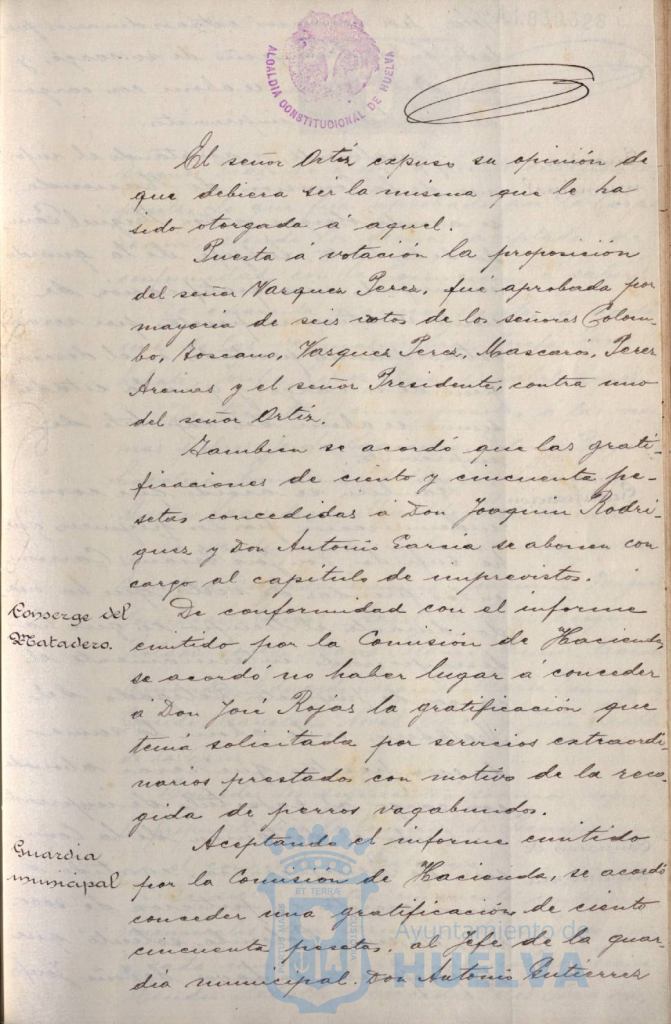 ALCALDIA CONSTITUCIONAL DE HUELVA
El señor Ortiz expuso su opinión de
que debiera ser la misma que le ha
sido otorgada á aquel.
Puesta á votación la proposición
del señor Vazquez Perez, fué aprobada por
mayoria de seis votos de los señores Colom-
bo, Toscano, Vazquez Perez, Mascarós, Perez
Arenas y el señor Presidente, contra uno
del señor Ortiz.
Tambien se acordó que las grati-
ficaciones de ciento y cincuenta pe-
setas concedidas á Don Joaquin Rodri-
guez y Don Antonio Garcia se abonen con
cargo al capitulo de imprevistos.
Conserge del
Matadero.
De conformidad con el informe
emitido por la Comisión de Hacienda,
se acordó no haber lugar á conceder
á Don José Rojas la gratificación que
tenia solicitada por servicios extraordi-
narios prestados con motivo de la reco-
gida de perros vagabundos.
Guardia
municipal
Aceptando el informe emitido
por la Comisión de Hacienda, se acordó
conceder una gratificación de ciento
cincuenta pesetas, al Jefe de la guar-
dia municipal. Don Antonio Gutierrez
Ayuntamiento de
HUELVA